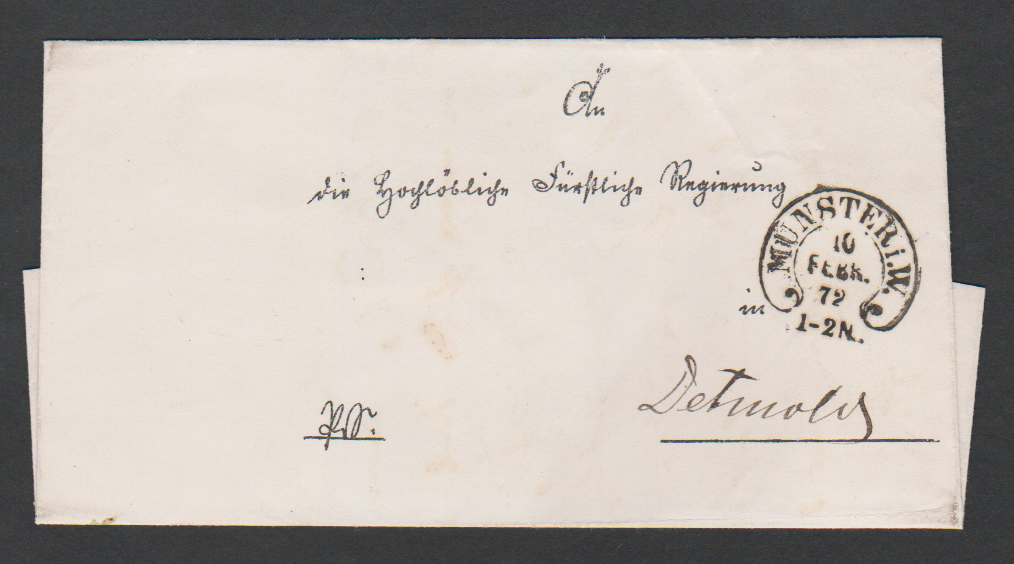 An
die Hochlöbliche Fürstliche Regierung
MÜNSTER i.W.
10
FEBR.
72
1-2N.
in
Detmold